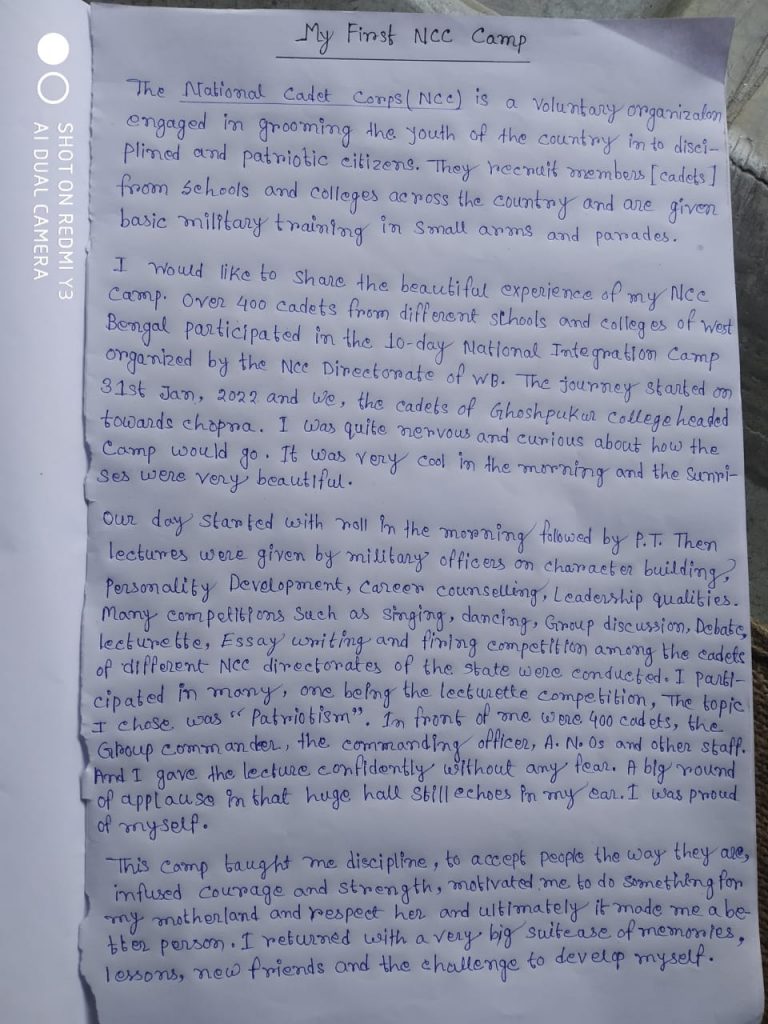 My First NCC Camp
The National Cadet Corps(NCC) is a voluntary organizaton
engaged in grooming the youth of the country in to disci-
plined and patriotic citizens. They recruit members [cadets]
from schools and colleges across the country and are given
basic military training in small arms and parades.
I would like to share the beautiful experience of my NCC
Camp. Over 400 cadets from different schools and colleges of West
Bengal participated in the 10-day National Integration Camp
organized by the NCC Directorate of WB. The journey started on
31st Jan, 2022 and we, the cadets of Ghoshpukur college headed
towards chopra. I was quite nervous and curious about how the
Camp would go. It was very cool in the morning and the sunri-
ses were very beautiful.
Our day started with roll in the morning followed by P.T. Then
lectures were given by military officers on character building,
Personality Development, career counselling, Leadership qualities.
Many competitions such as singing, dancing, Group discussion, Debate,
lecturette, Essay writing and firing competition among the cadets
of different NCC directorates of the state were conducted. I parti-
cipated in many, one being the lecturette competition, The topic
I chose was "Patriotism". In front of me were 400 cadets, the
Group commander, the commanding officer, A.N.Os and other staff.
And I gave the lecture confidently without any fear. A big round
of applause in that huge hall still echoes in my ear. I was proud
of myself.
This camp taught me discipline, to accept people the way they are,
infused courage and strength, motivated me to do something for
my motherland and respect her and ultimately it made me a be-
tter person. I returned with a very big suitcase of memories,
lessons, new friends and the challenge to develop myself.
SHOT ON REDMI Y3
AI DUAL CAMERA